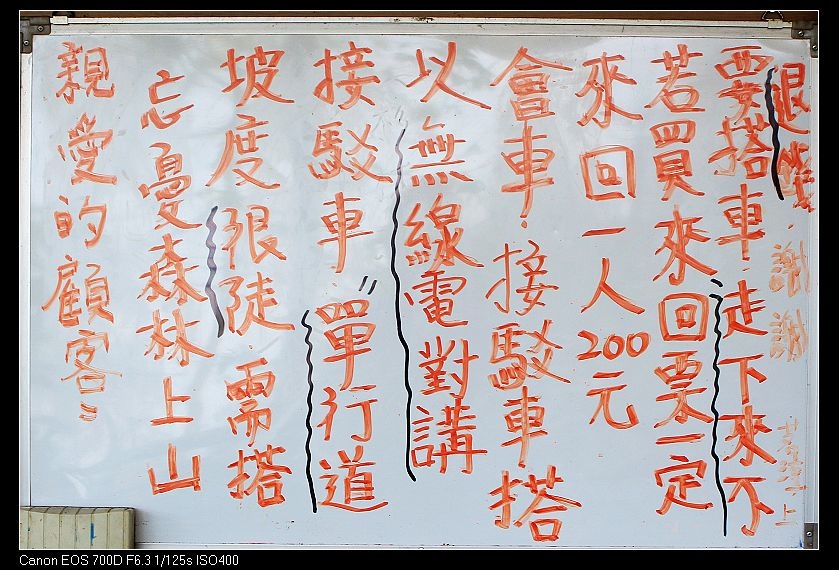 親愛的顧客:
忘憂森林上山
坡度很陡.需搭
接駁車."單行道
以無線電對講
會車.接駁車搭
來回一人200元
若買來回票一定
要搭車.走下來不
退錢.謝謝
Canon EOS 700D F6.3 1/125s ISO400